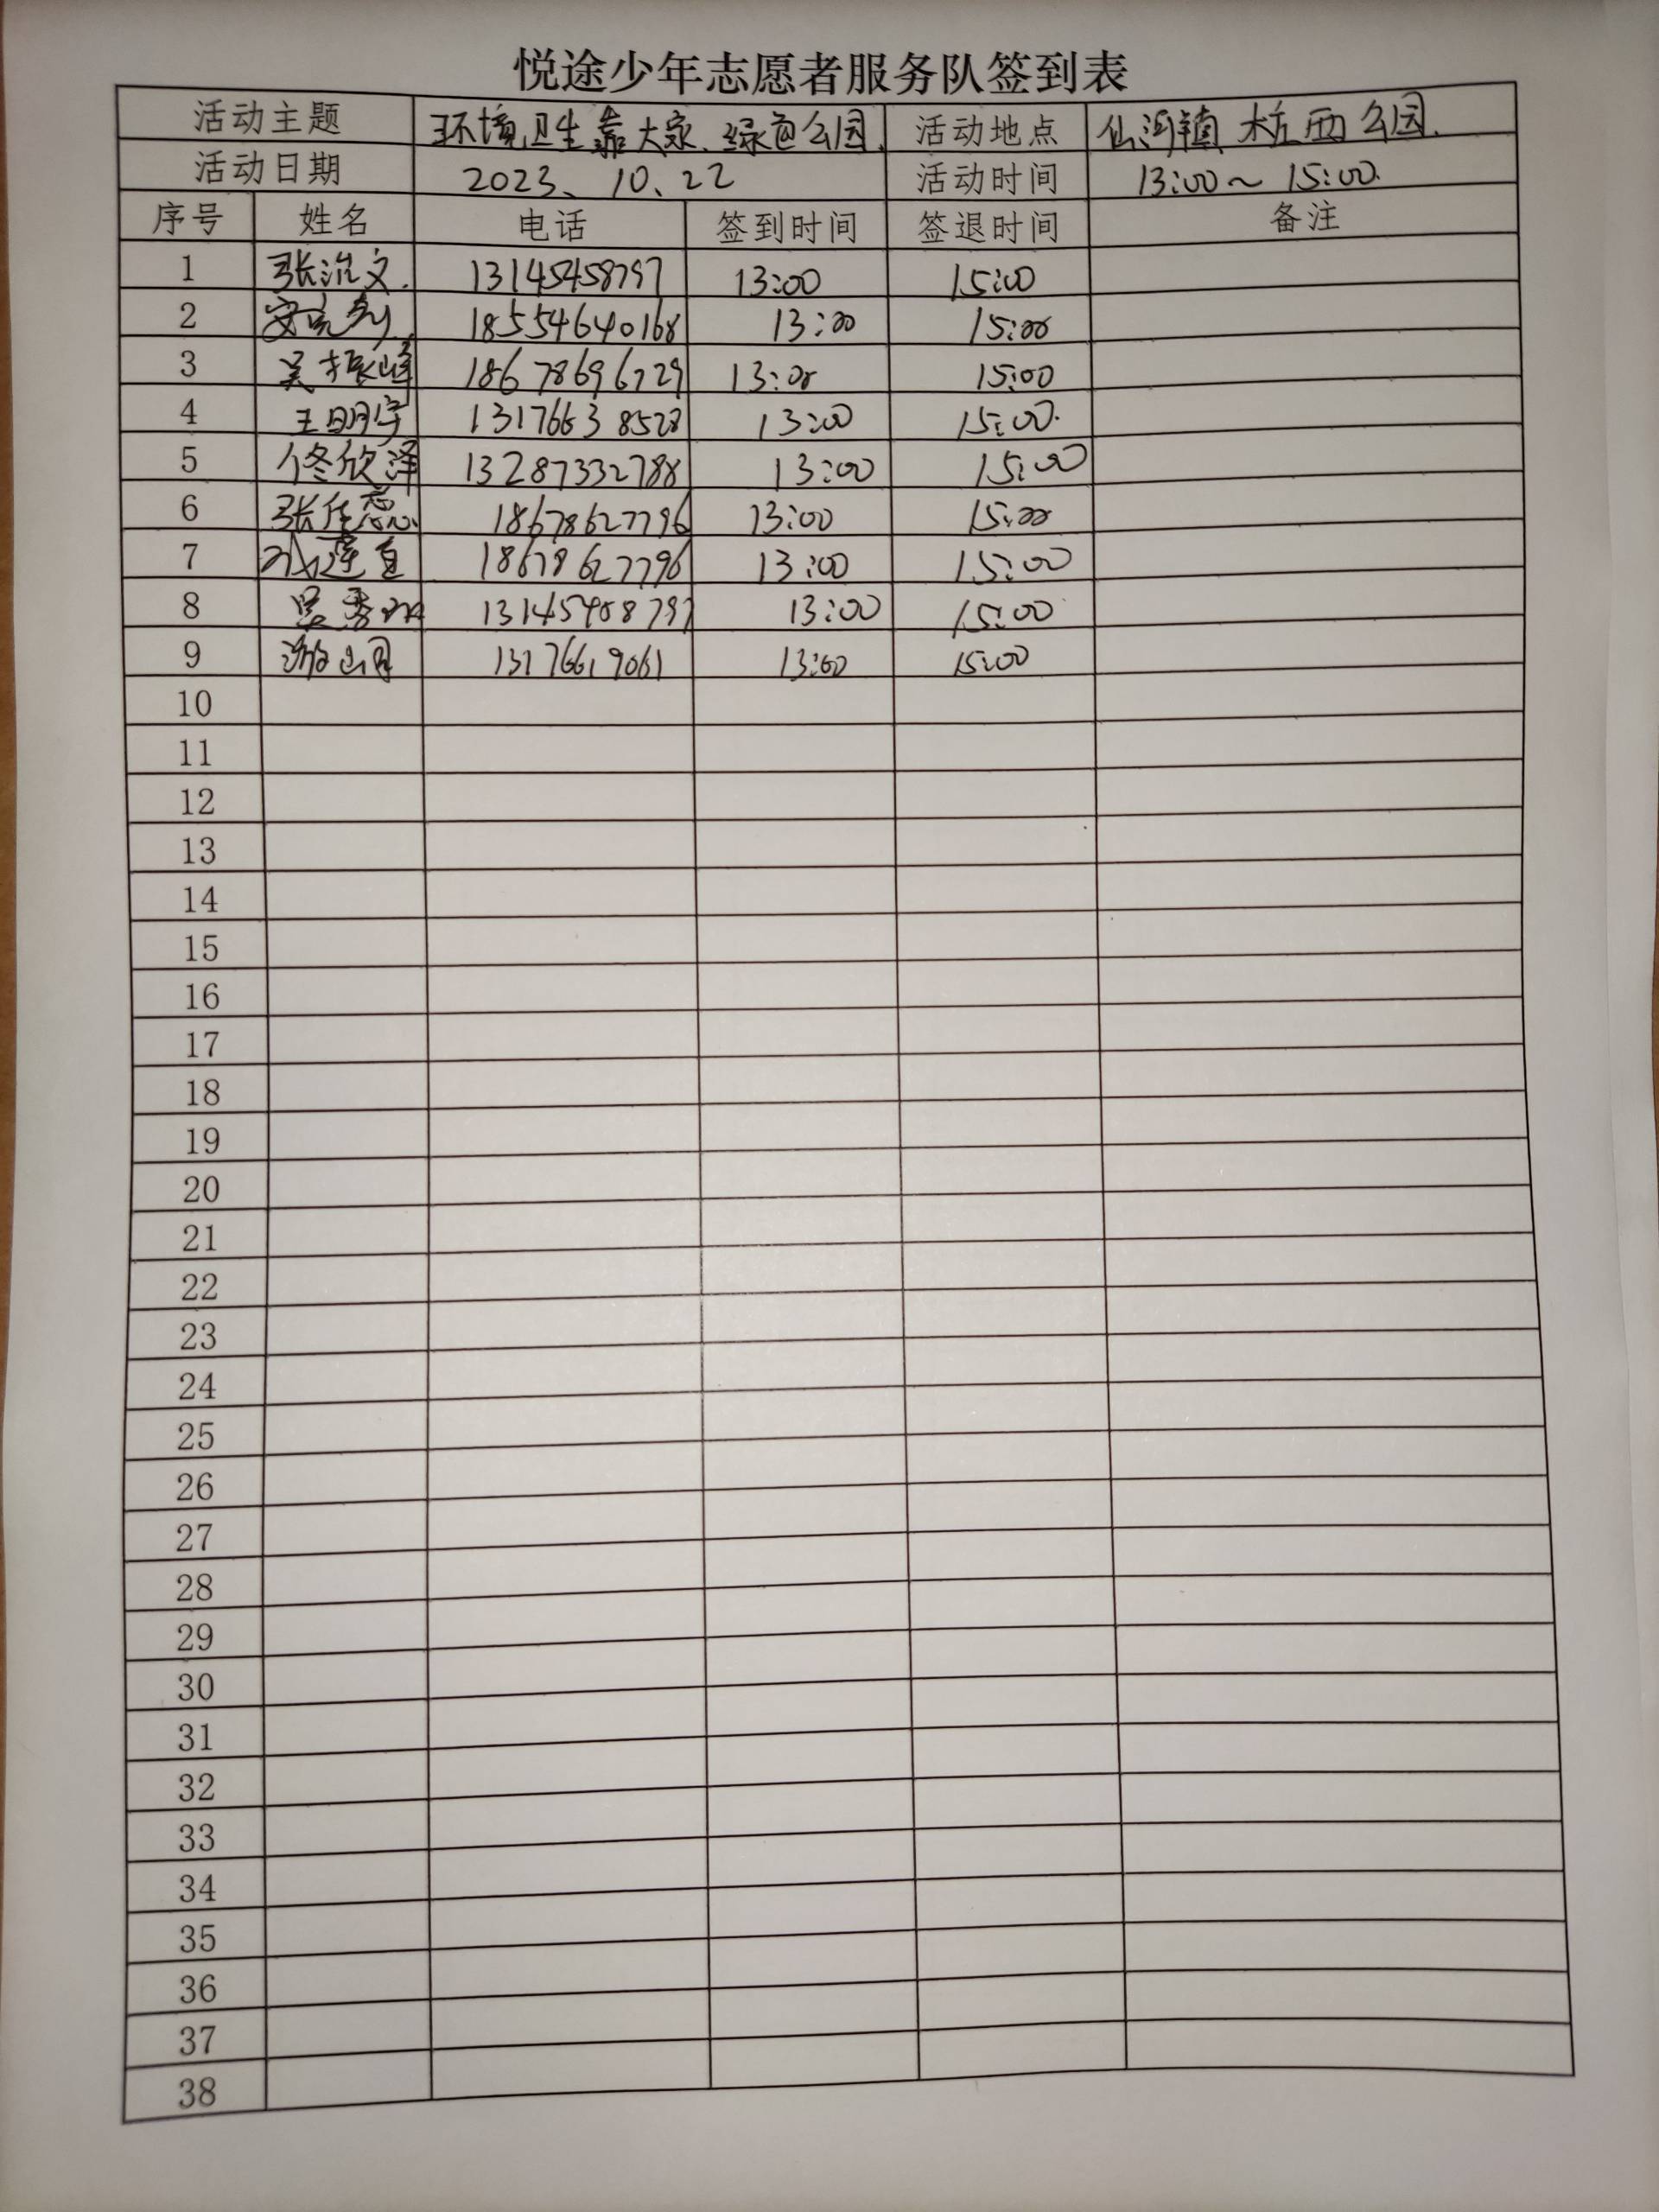 悦途少年志愿者服务队签到表
活动主题 环境卫生靠大家.绿色公园. 活动地点 仙河镇 桩西公园.
活动日期 2023、10、22 活动时间 13:00~15:00.
序号 姓名 电话 签到时间 签退时间 备注
1 张 文. 13145458797 13:00 15:00
2 18554640168 13:00 15:00
3 吴振峰 18678696729 13:00 15:00
4 王明宇 13176638528 13:00 15:00.
5 佟欣泽 13287332788 13:00 15:00
6 张 蕊 18678627796 13:00 15:00
7 18678627796 13:00 15:00
8 吴秀 13:00 15:00
9 13176619061 13:00 15:00
10
11
12
13
14
15
16
17
18
19
20
21
22
23
24
25
26
27
28
29
30
31
32
33
34
35
36
37
38